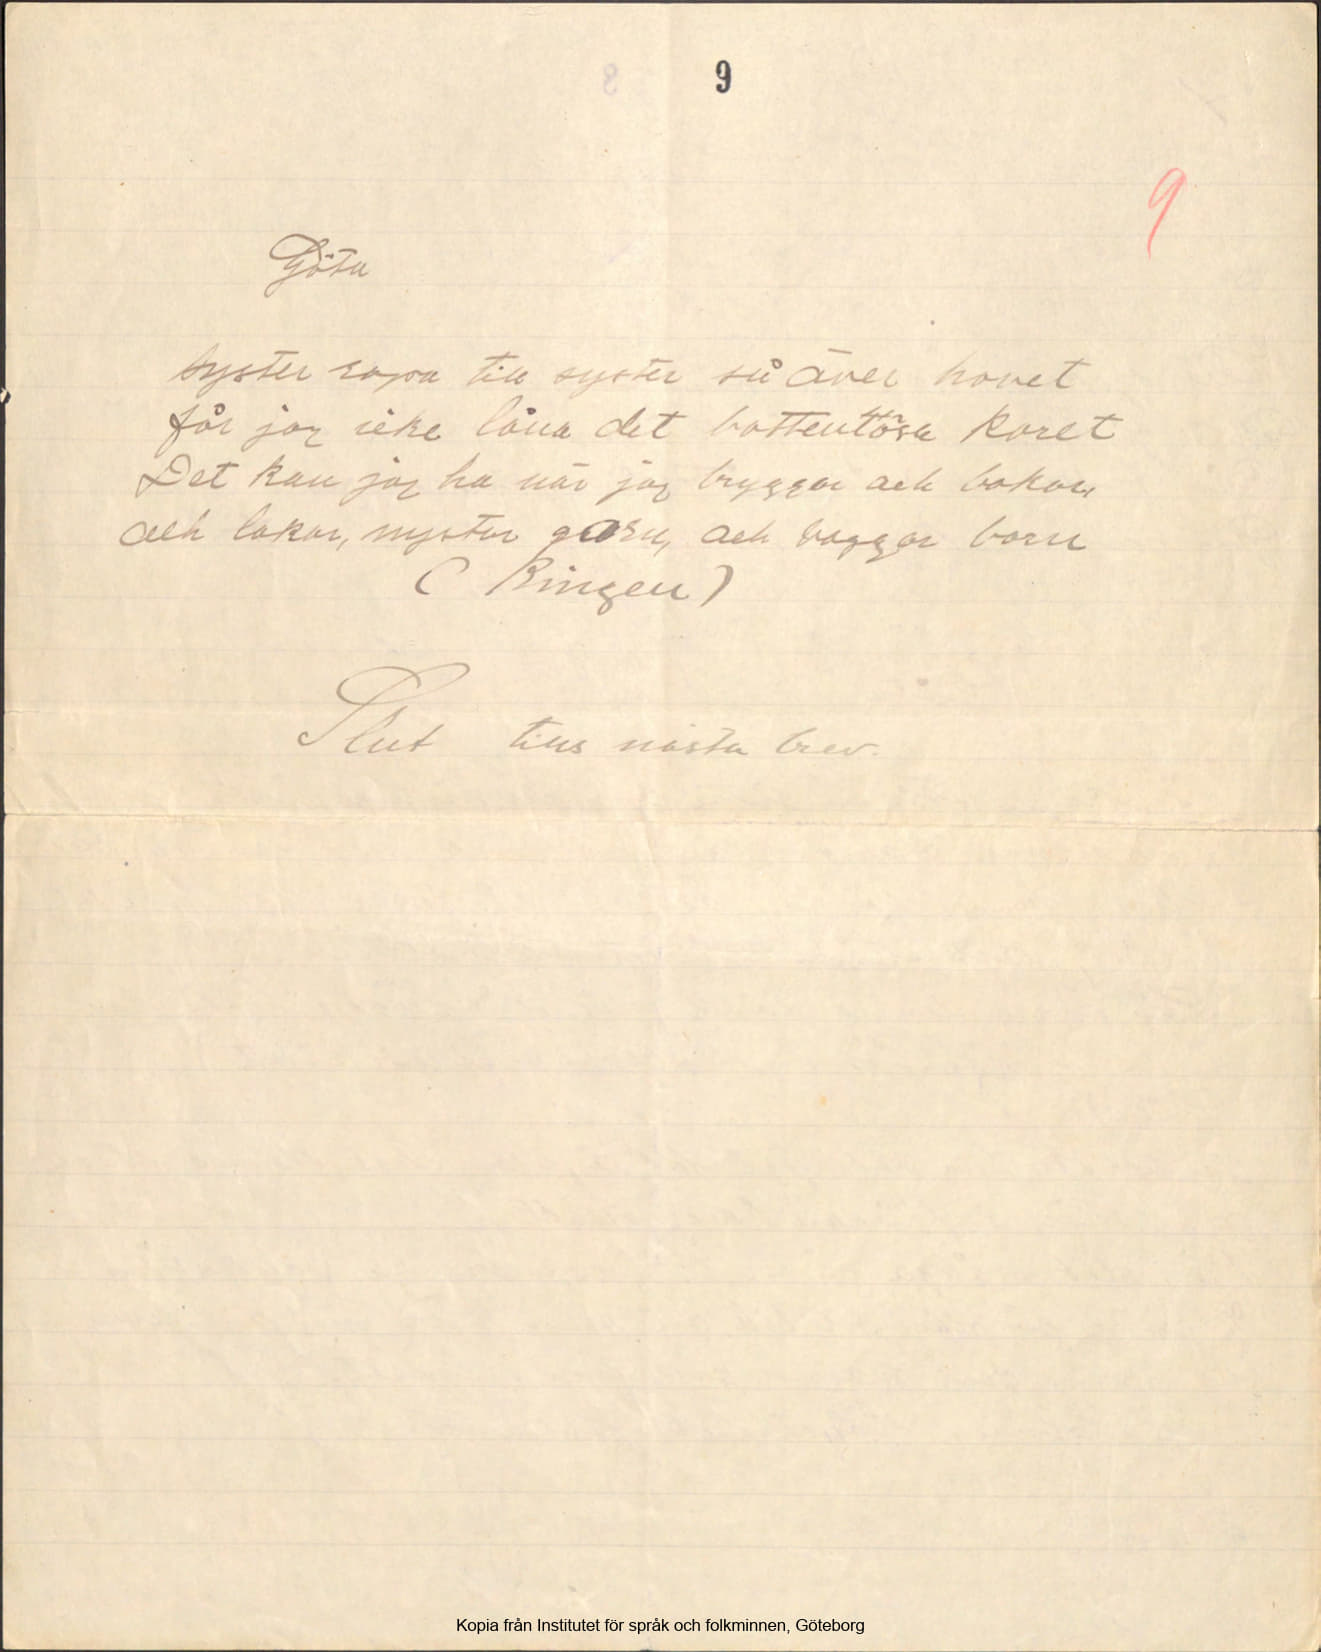 9
9
Göta
Syster ropa till syster så över havet
får jag icke låna det bottenlösa karet
Det kan jag ha när jag bryggar och bakar,
och lakar, nystar garn, och vaggar barn
( Ringen )
Slut tills nästa brev.
Kopia från Institutet för språk och folkminnen, Göteborg